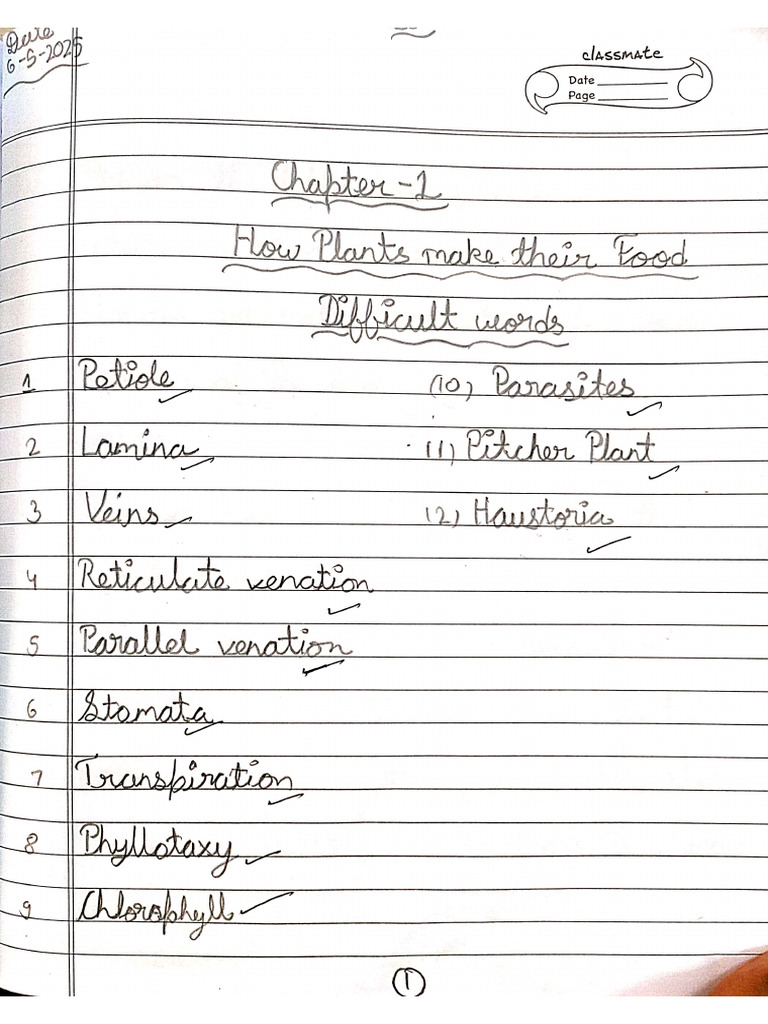 Date
6-5-2025
classmate
Date
Page
Chapter-1
How Plants make their Food
Difficult words
1 Petiole
(10) Parasites
2 Lamina
11) Pitcher Plant
3 Veins
12) Haustoria
4 Reticulate venation
5 Parallel venation
6 Stomata
7 Transpiration
8 Phyllotaxy
9 Chlorophyll
1